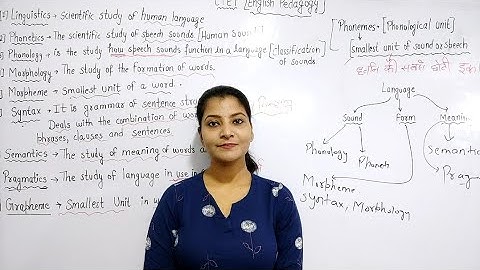 Linguistics → Scientific study of human language
CTET [English Pedagogy]
Phonetics → The scientific study of speech sounds. [Human Sound]
Phonology → is the study how speech sounds function in a language [classification of sounds.
Morphology → The study of the formation of words.
Morpheme → Smallest unit of a word.
Syntax → It is grammars of sentence
Deals with the combination of
phrases, clauses and sentences.
Semantics → The study of meaning of words
Pragmatics → The study of language in use in
Grapheme → Smallest Unit in
Phonemes → [Phonological unit]
Smallest unit of sound or speech
ध्वनि की सबसे छोटी
Language
Sound Form
Phonology
Morpheme
Syntax, Morphology